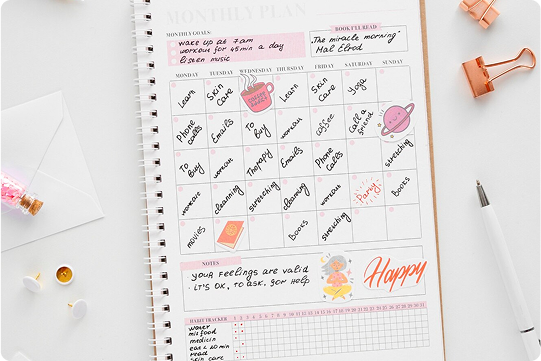 MONTHLY PLAN
MONTHLY GOALS:
wake up at 7am
workout for 45min a day
listen music
BOOK I'LL READ
"The miracle morning"
Hal Elrod
MONDAY TUESDAY WEDNESDAY THURSDAY FRIDAY SATURDAY SUNDAY
Learn Skin Care Learn Skin Care Yoga
Phone calls Emails To Buy workout coffee Call a friend
To Buy workout Therapy Emails Phone Calls stretching
workout cleaning stretching cleaning workout Party Books
movies Books stretching
NOTES
YOUR FEELINGS ARE VALID
- IT'S OK, TO ASK, FOR HELP
Happy
HABIT TRACKER 1 2 3 4 5 6 7 8 9 10 11 12 13 14 15 16 17 18 19 20 21 22 23 24 25 26 27 28 29 30 31
water
medicin
read
skin care